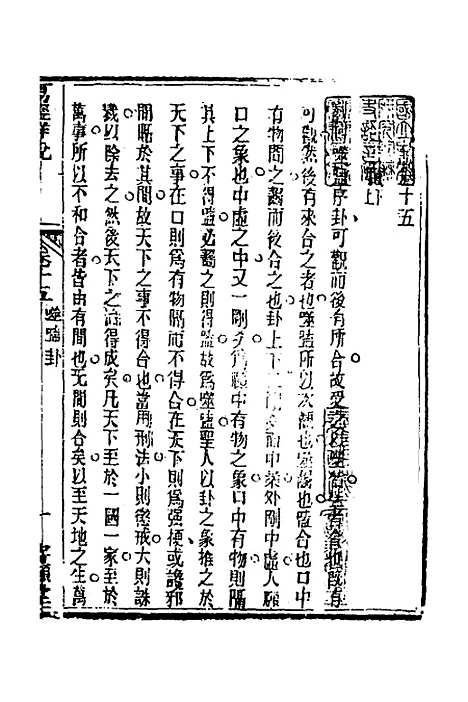 十五
上
序卦可觀而後有所合故受之以噬嗑嗑者合也既有
可觀然後有來合之者也噬嗑所以次觀也噬齧也嗑合也口中
有物間之齧而後合之也卦上下二剛爻而中柔外剛中虛人頤
口之象也中虛之中又一剛爻爲頤中有物之象口中有物則隔
其上下不得嗑必齧之則得嗑故爲噬嗑聖人以卦之象推之於
天下之事在口則爲有物隔而不得合在天下則爲有强梗或讒邪
間隔於其間故天下之事不得合也當用刑法小則懲戒大則誅
戮以除去之然後天下之治得成矣凡天下至於一國一家至於
萬事所以不和合者皆由有間也无間則合矣以至天地之生萬
卷十五 噬嗑卦